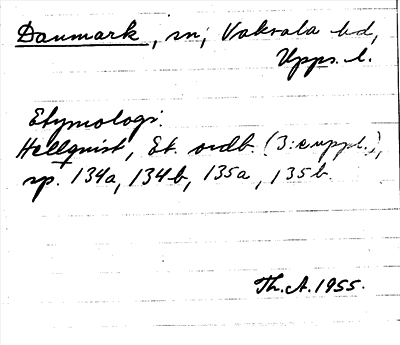 Danmark, sn; Vaksala hd,
Upps. l.
Etymologi:
Hellquist, Et. ordb. (3:e uppl.),
sp. 134a, 134b, 135a, 135b.
Th. A. 1955.